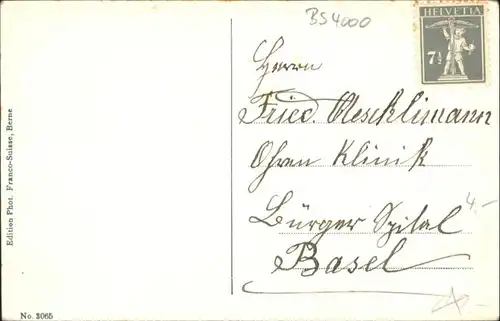 BS4000
HELVETIA
7½
Herrn
Fried. Aescklimann
Ohren Klinik
4.-
Bürger Spital
Basel
Edition Phot. Franco-Suisse, Berne
No. 3065